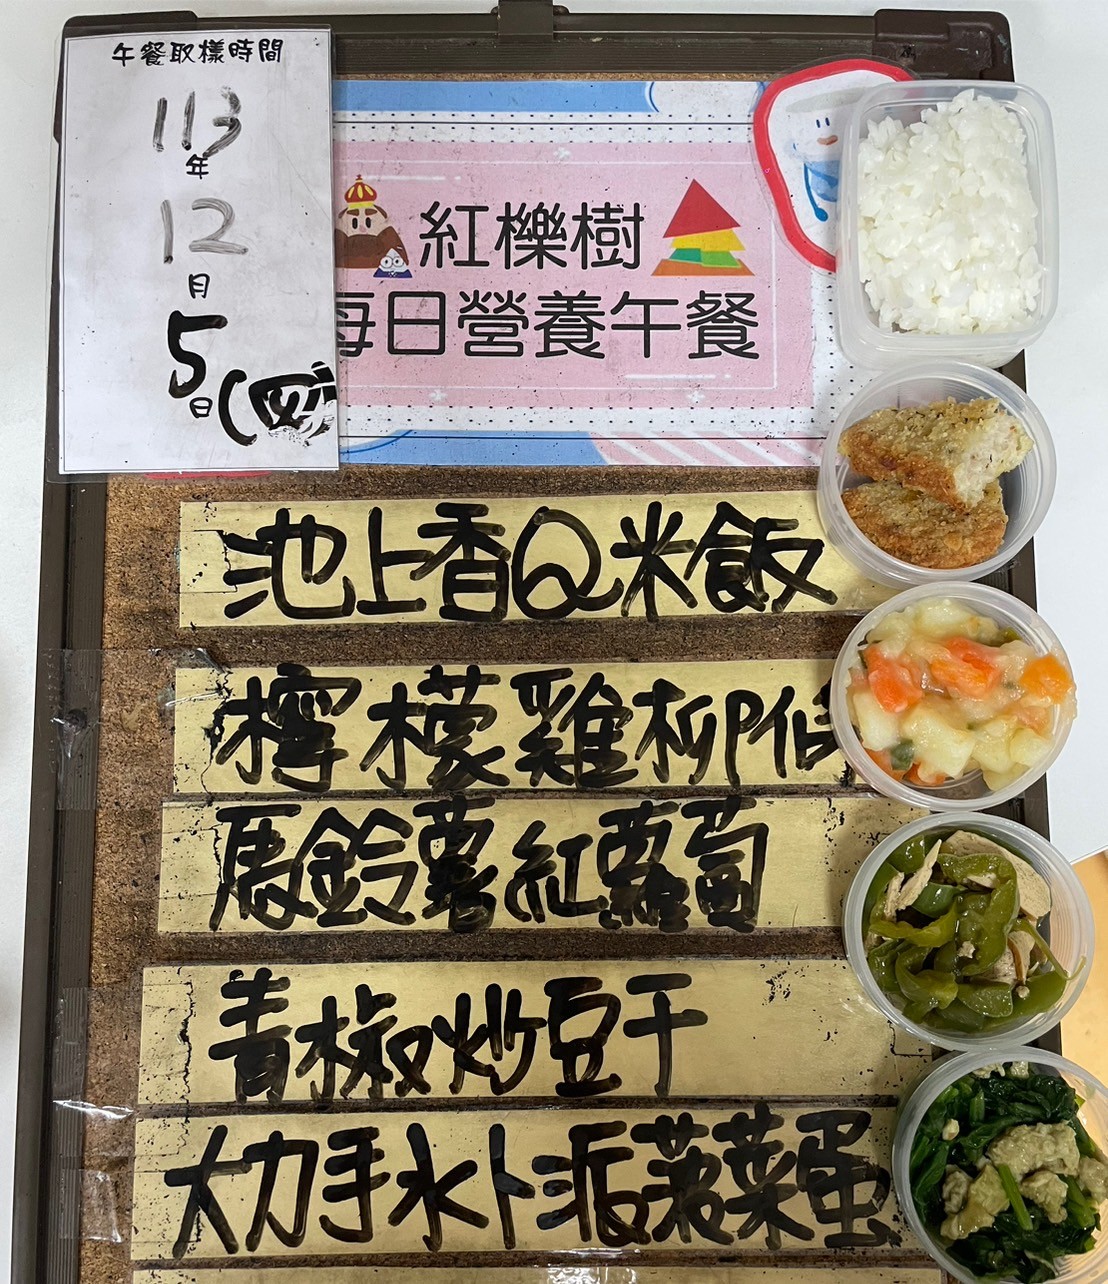 午餐取樣時間
113
年
12
月
5
日(四)
紅櫟樹
每日營養午餐
池上香Q米飯
檸檬雞柳
馬鈴薯紅蘿蔔
青椒炒豆干
大力手水卜派菠菜蛋